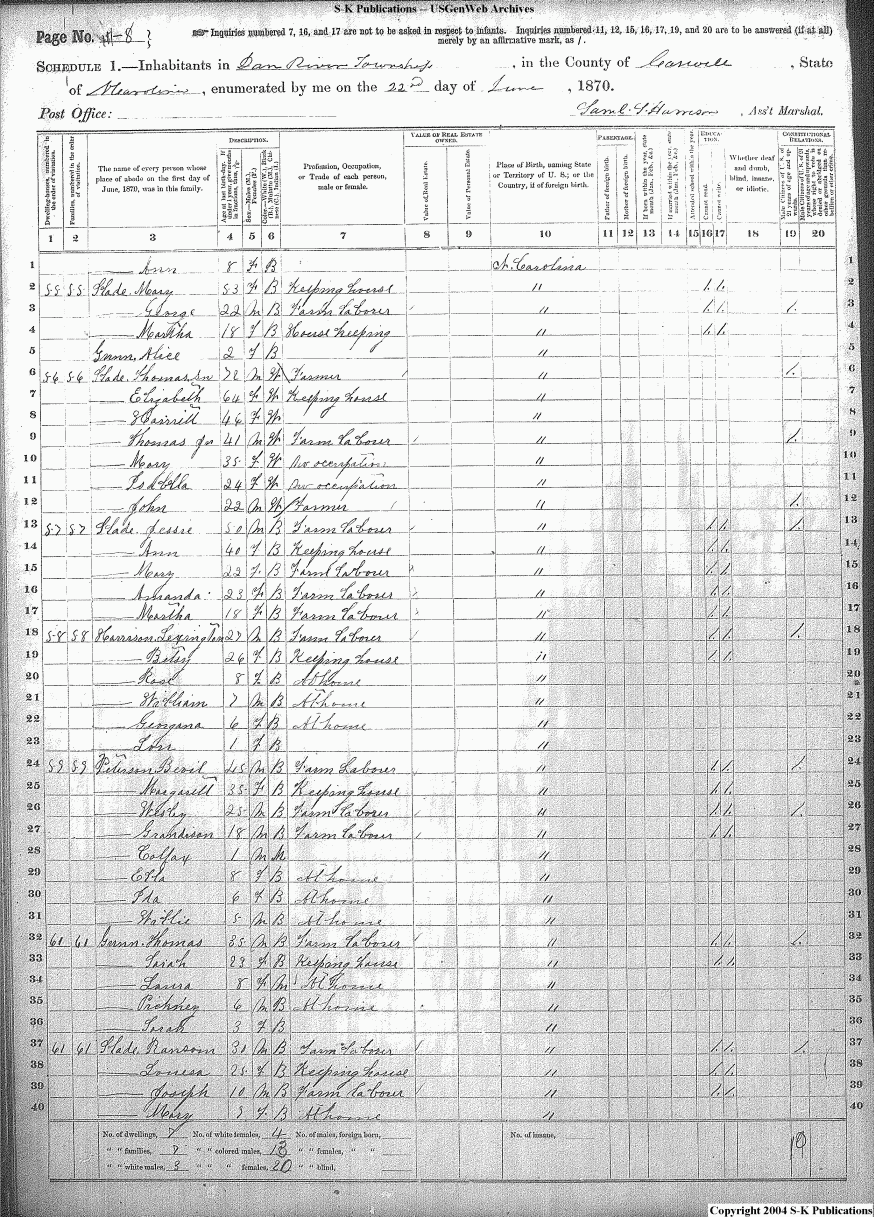 S-K Publications – USGenWeb Archives
Page No. 8
Inquiries numbered 7, 16, and 17 are not to be asked in respect to infants. Inquiries numbered 11, 12, 15, 16, 17, 19, and 20 are to be answered (if at all) merely by an affirmative mark, as /.
SCHEDULE 1.—Inhabitants in Dan River Township, in the County of Caswell, State
of N Carolina, enumerated by me on the 22nd day of June, 1870.
Post Office: Saml. S. Harrison, Ass't Marshal.
Dwelling-houses, numbered in the order of visitation.
Families, numbered in the order of visitation.
The name of every person whose place of abode on the first day of June, 1870, was in this family.
DESCRIPTION.
Age at last birth-day. If under 1 year, give months in fractions, thus, 3/12
Sex.—Males (M.), Females (F.)
Color.—White (W.), Black (B.), Mulatto (M.), Chinese (C.), Indian (I.)
Profession, Occupation, or Trade of each person, male or female.
VALUE OF REAL ESTATE OWNED.
Value of Real Estate.
Value of Personal Estate.
Place of Birth, naming State or Territory of U. S.; or the Country, if of foreign birth.
PARENTAGE.
Father of foreign birth.
Mother of foreign birth.
If born within the year, state month (Jan., Feb., &c.)
If married within the year, state month (Jan., Feb., &c.)
Attended school within the year.
EDUCATION.
Cannot read.
Cannot write.
Whether deaf and dumb, blind, insane, or idiotic.
CONSTITUTIONAL RELATIONS.
Male Citizens of U. S. of 21 years of age and upwards.
1 2 3 4 5 6 7 8 9 10 11 12 13 14 15 16 17 18 19 20
1 — Ann 8 F B N. Carolina 1
2 55 55 Slade, Mary 53 F B Keeping house " / / 2
3 — George 22 M B Farm laborer " / / / 3
4 — Martha 18 F B House keeping " / / 4
5 Gunn, Alice 2 F B " 5
6 56 56 Slade, Thomas Sn 72 M W Farmer " / 6
7 — Elizabeth 64 F W Keeping house " 7
8 — 46 F W " 8
9 — Thomas Jn 41 M W Farm laborer " / 9
10 — Mary 35 F W No occupation " 10
11 — Isabella 24 F W No occupation " 11
12 — John 22 M W Farmer " / 12
13 57 57 Slade, Jesse 50 M B Farm laborer " / / / 13
14 — Ann 40 F B Keeping house " / / 14
15 — Mary 22 F B Farm laborer " / / 15
16 — Amanda 23 F B Farm laborer " / / 16
17 — Martha 18 F B Farm laborer " / / 17
18 58 58 Harrison, Lexington 27 M B Farm laborer " / / / 18
19 — Betsy 26 F B Keeping house " / / 19
20 — Rose 8 F B At home " 20
21 — William 7 M B At home " 21
22 — Georgana 6 F B At home " 22
23 — 1 F B " 23
24 59 59 Peterson, Bevil 45 M B Farm Laborer " / / / 24
25 — Margarett 35 F B Keeping house " / / 25
26 — Wesley 25 M B Farm laborer " / / / 26
27 — Grandison 18 M B Farm laborer " / / 27
28 — Colfax 1 M M " 28
29 — Etta 8 F B At home " 29
30 — Ida 6 F B At home " 30
31 — Willie 5 M B At home " 31
32 61 61 Gunn, Thomas 35 M B Farm laborer " / / / 32
33 — Sarah 23 F B Keeping house " / / 33
34 — Laura 8 F M At home " 34
35 — Pickney 6 M B At home " 35
36 — Sarah 3 F B " 36
37 61 61 Slade, Ransom 30 M B Farm laborer " / / / 37
38 — Louesa 25 F B Keeping house " / / 38
39 — Joseph 10 M B Farm laborer " / / 39
40 — Mary 9 F B At home " 40
No. of dwellings, 7 No. of white females, 4 No. of males, foreign born, No. of insane, 10
" " families, 7 " " colored males, 13 " " females, " "
" " white males, 3 " " " females, 20 " " blind,
Copyright 2004 S-K Publications